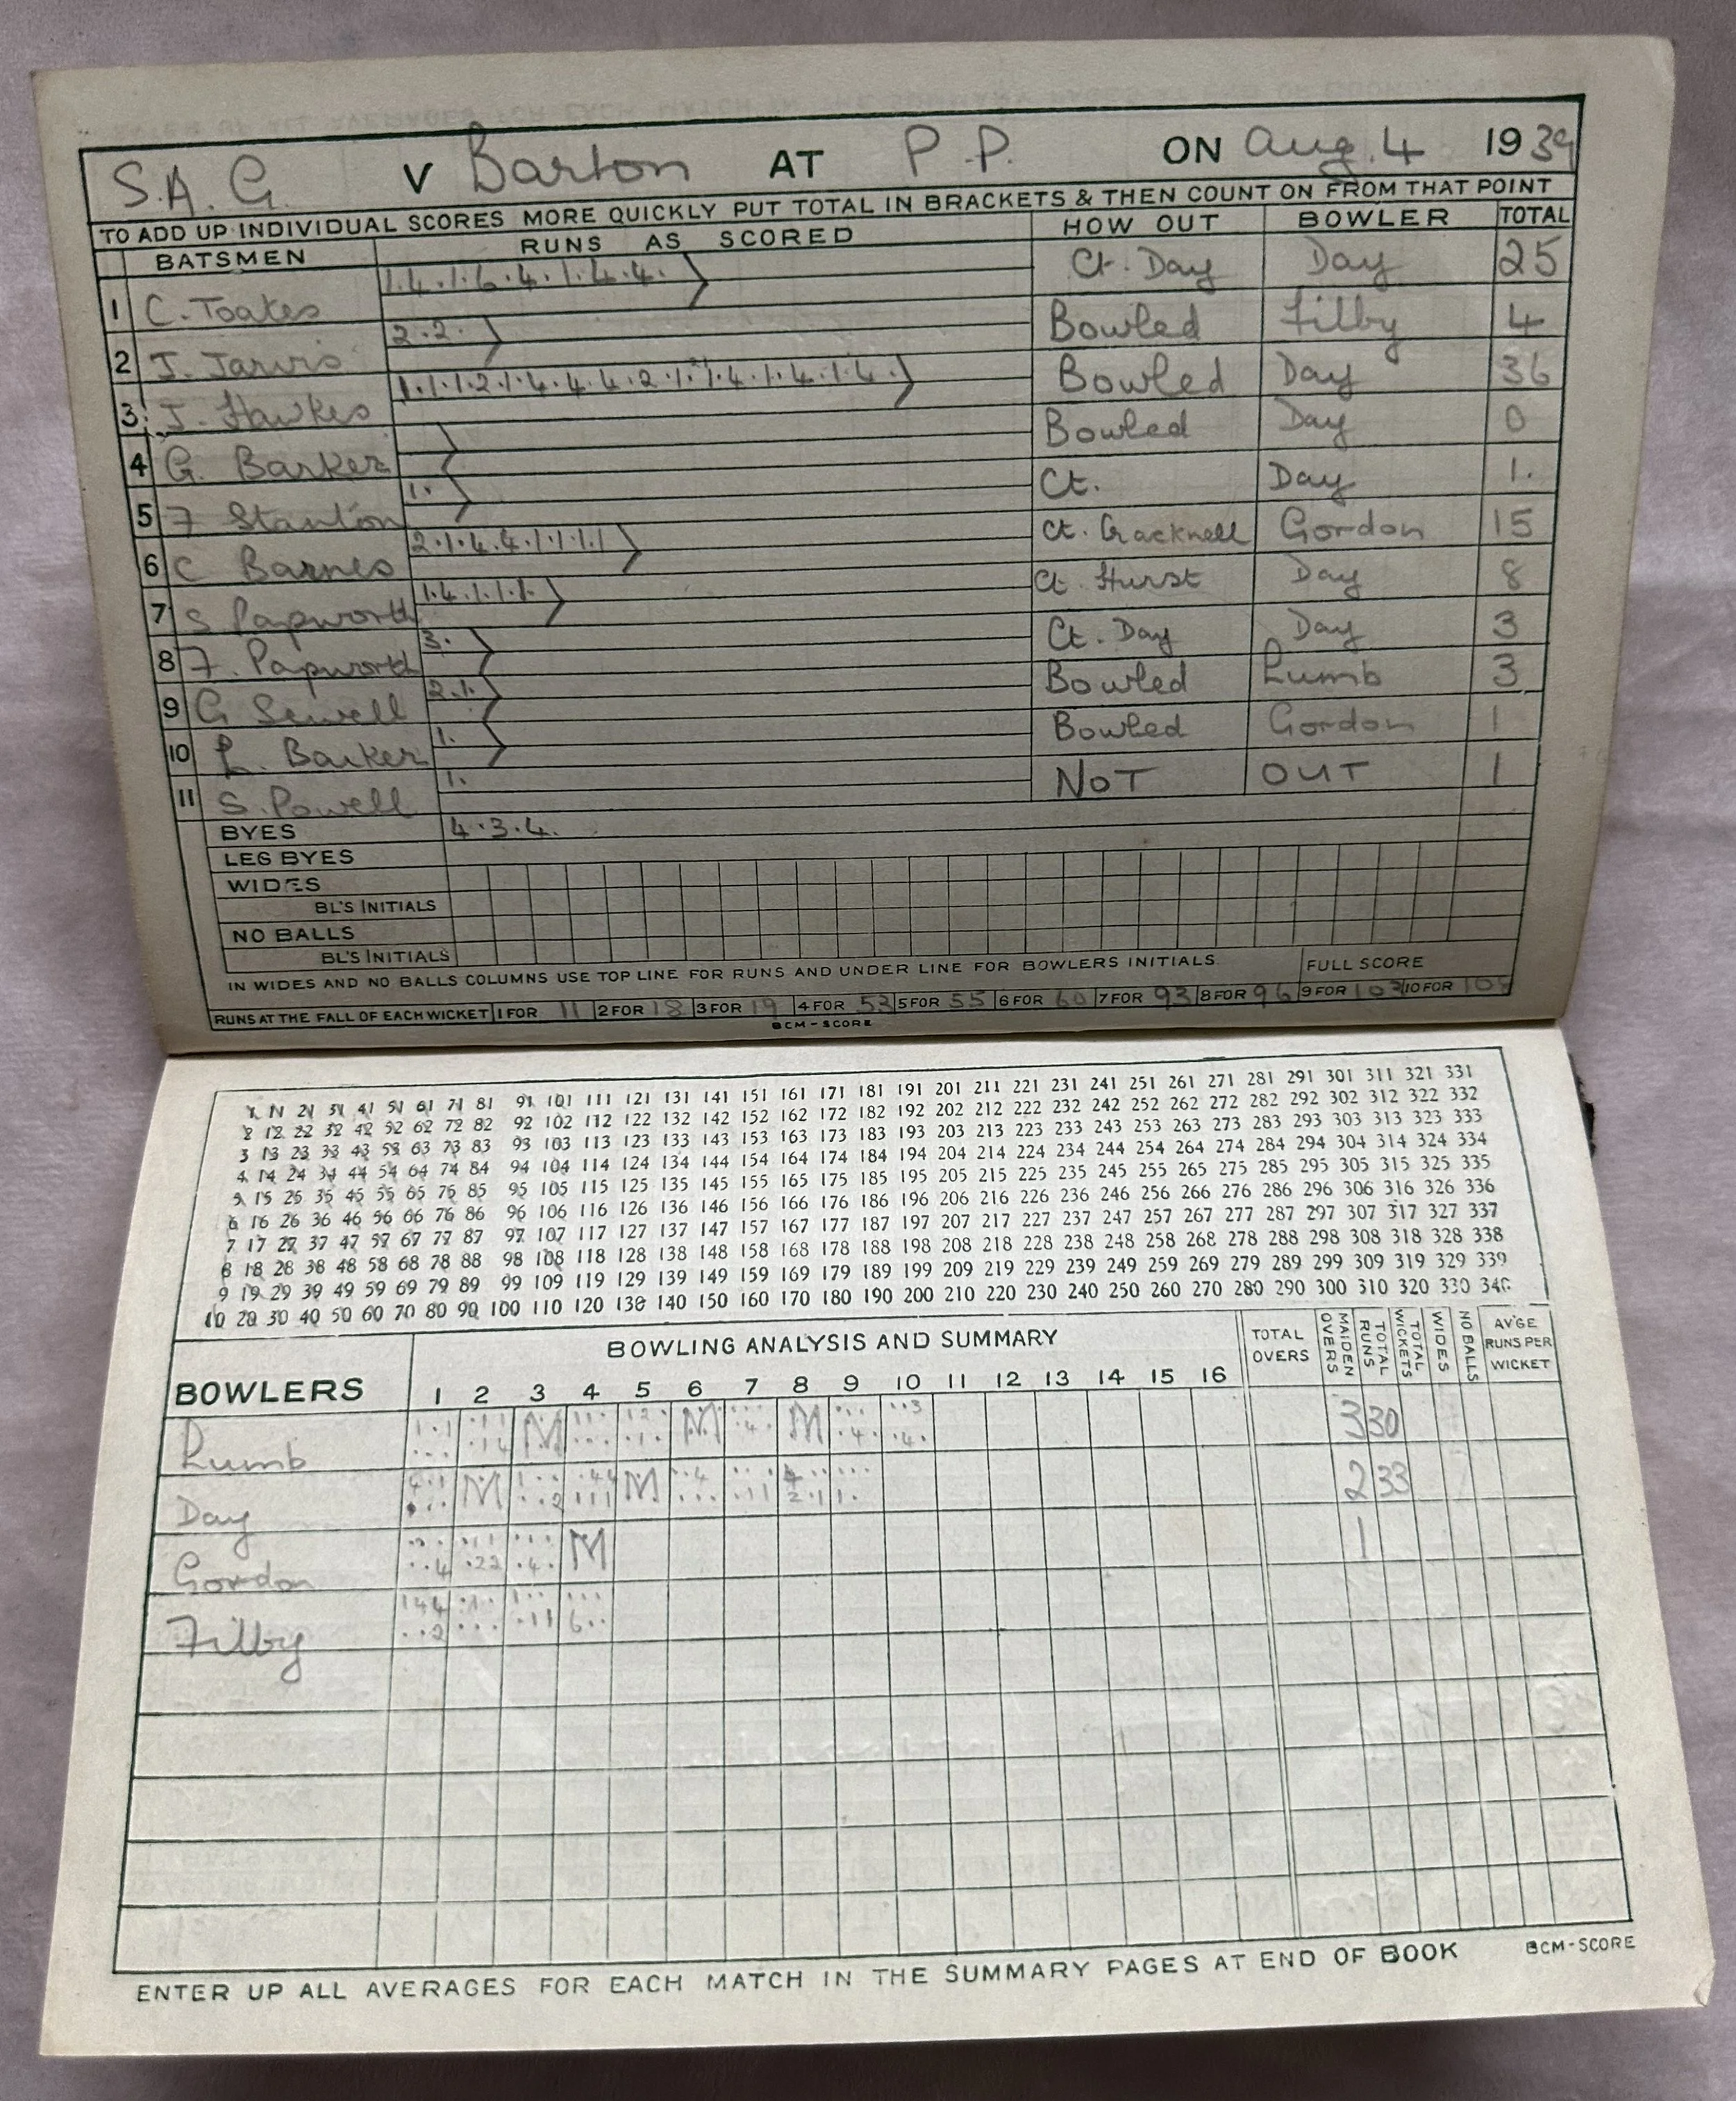 S.A.G. V Barton AT P.P. ON Aug. 4 1939
TO ADD UP INDIVIDUAL SCORES MORE QUICKLY PUT TOTAL IN BRACKETS & THEN COUNT ON FROM THAT POINT
BATSMEN RUNS AS SCORED HOW OUT BOWLER TOTAL
1 C. Toates 1.4.1.6.4.1.4.4. Ct. Day Day 25
2 J. Jarvis 2.2. Bowled Filby 4
3 J. Hawkes 1.1.1.2.1.4.4.4.2.1.1.4.1.4.1.4. Bowled Day 36
4 G. Barker Bowled Day 0
5 F Stanton 1. Ct. Day 1.
6 C Barnes 2.1.4.4.1.1.1.1 Ct. Cracknell Gordon 15
7 S Papworth 1.4.1.1.1. Ct. Hurst Day 8
8 F. Papworth 3. Ct. Day Day 3
9 G Sewell 2.1. Bowled Lumb 3
10 L. Barker 1. Bowled Gordon 1
11 S. Powell 1. NOT OUT 1
BYES 4.3.4.
LEG BYES
WIDES
BL'S INITIALS
NO BALLS
BL'S INITIALS
IN WIDES AND NO BALLS COLUMNS USE TOP LINE FOR RUNS AND UNDER LINE FOR BOWLERS INITIALS. FULL SCORE
RUNS AT THE FALL OF EACH WICKET 1 FOR 11 2 FOR 18 3 FOR 19 4 FOR 53 5 FOR 55 6 FOR 60 7 FOR 93 8 FOR 96 9 FOR 103 10 FOR 108
BCM-SCORE
1 11 21 31 41 51 61 71 81 91 101 111 121 131 141 151 161 171 181 191 201 211 221 231 241 251 261 271 281 291 301 311 321 331
2 12 22 32 42 52 62 72 82 92 102 112 122 132 142 152 162 172 182 192 202 212 222 232 242 252 262 272 282 292 302 312 322 332
3 13 23 33 43 53 63 73 83 93 103 113 123 133 143 153 163 173 183 193 203 213 223 233 243 253 263 273 283 293 303 313 323 333
4 14 24 34 44 54 64 74 84 94 104 114 124 134 144 154 164 174 184 194 204 214 224 234 244 254 264 274 284 294 304 314 324 334
5 15 25 35 45 55 65 75 85 95 105 115 125 135 145 155 165 175 185 195 205 215 225 235 245 255 265 275 285 295 305 315 325 335
6 16 26 36 46 56 66 76 86 96 106 116 126 136 146 156 166 176 186 196 206 216 226 236 246 256 266 276 286 296 306 316 326 336
7 17 27 37 47 57 67 77 87 97 107 117 127 137 147 157 167 177 187 197 207 217 227 237 247 257 267 277 287 297 307 317 327 337
8 18 28 38 48 58 68 78 88 98 108 118 128 138 148 158 168 178 188 198 208 218 228 238 248 258 268 278 288 298 308 318 328 338
9 19 29 39 49 59 69 79 89 99 109 119 129 139 149 159 169 179 189 199 209 219 229 239 249 259 269 279 289 299 309 319 329 339
10 20 30 40 50 60 70 80 90 100 110 120 130 140 150 160 170 180 190 200 210 220 230 240 250 260 270 280 290 300 310 320 330 340
BOWLING ANALYSIS AND SUMMARY TOTAL OVERS MAIDEN OVERS TOTAL RUNS TOTAL WICKETS WIDES NO BALLS AV'GE RUNS PER WICKET
BOWLERS 1 2 3 4 5 6 7 8 9 10 11 12 13 14 15 16
Lumb M M M 3 30
Day M M 2 33
Gordon M 1
Filby
ENTER UP ALL AVERAGES FOR EACH MATCH IN THE SUMMARY PAGES AT END OF BOOK BCM-SCORE